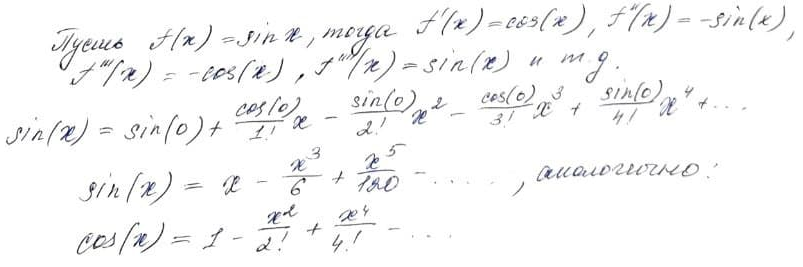 Пусть f(x) = sin x, тогда f'(x) = cos(x), f''(x) = -sin(x),
f'''(x) = -cos(x), f''''(x) = sin(x) и т.д.
sin(x) = sin(0) + cos(0)/1! x - sin(0)/2! x² - cos(0)/3! x³ + sin(0)/4! x⁴ + ...
sin(x) = x - x³/6 + x⁵/120 - ....., аналогично:
cos(x) = 1 - x²/2! + x⁴/4! - ....